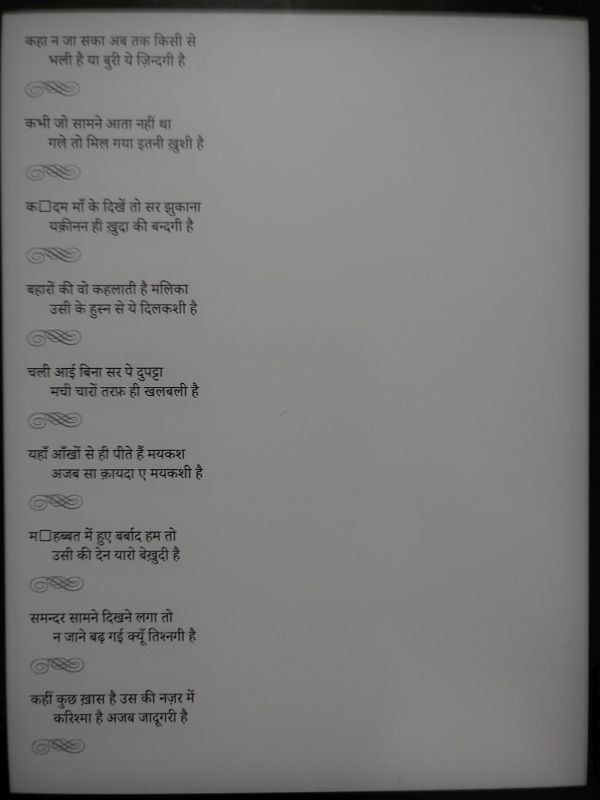 कहा न जा सका अब तक किसी से
भली है या बुरी ये ज़िन्दगी है
कभी जो सामने आता नहीं था
गले तो मिल गया इतनी ख़ुशी है
क□दम माँ के दिखें तो सर झुकाना
यक़ीनन ही ख़ुदा की बन्दगी है
बहारों की वो कहलाती है मलिका
उसी के हुस्न से ये दिलकशी है
चली आई बिना सर पे दुपट्टा
मची चारों तरफ़ ही खलबली है
यहाँ आँखों से ही पीते हैं मयकश
अजब सा क़ायदा ए मयकशी है
म□हब्बत में हुए बर्बाद हम तो
उसी की देन यारो बेख़ुदी है
समन्दर सामने दिखने लगा तो
न जाने बढ़ गई क्यूँ तिश्नगी है
कहीं कुछ ख़ास है उस की नज़र में
करिश्मा है अजब जादूगरी है